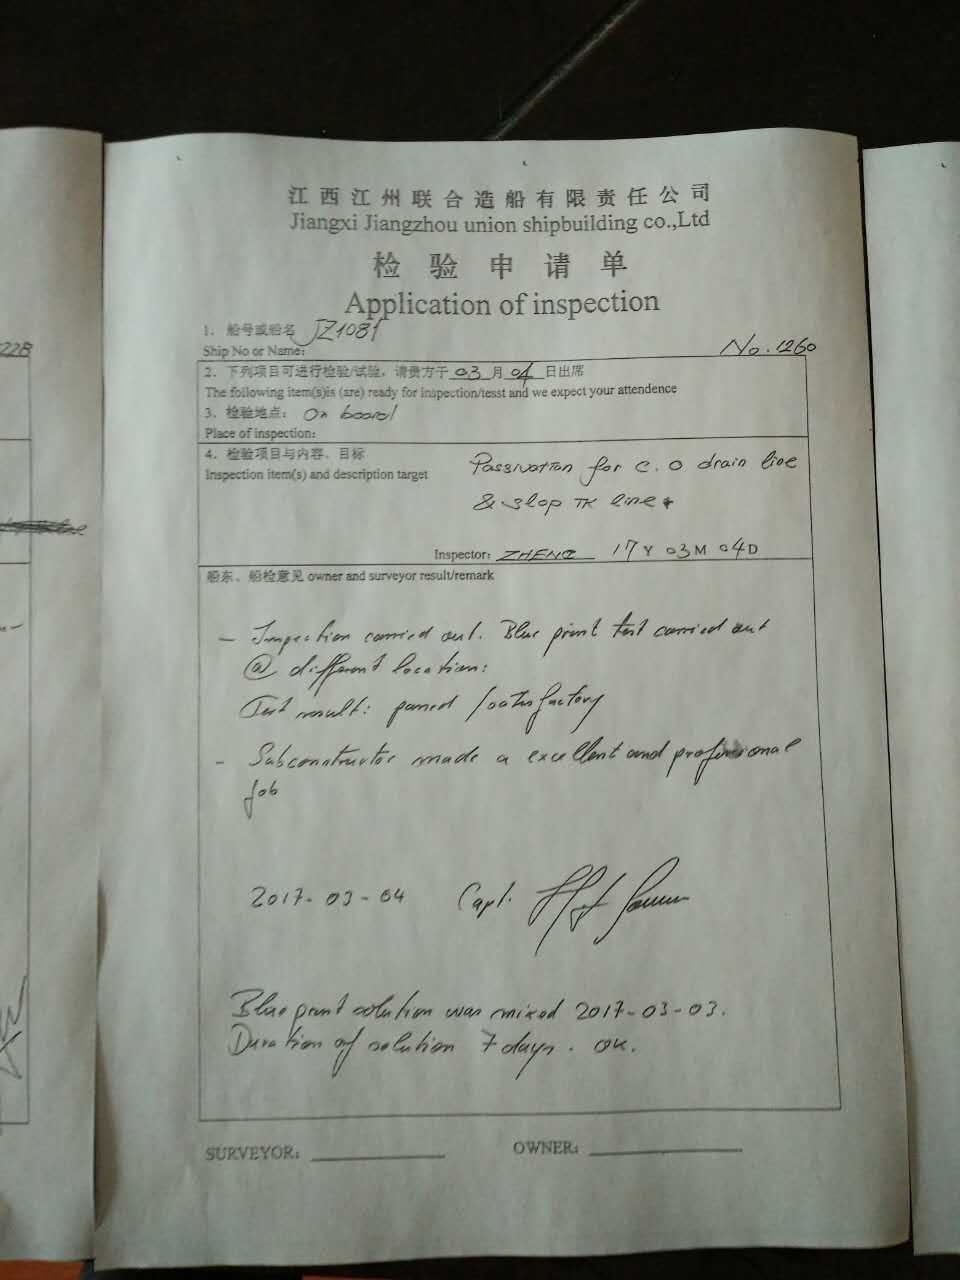 江西江州联合造船有限责任公司
Jiangxi Jiangzhou union shipbuilding co.,Ltd
检验申请单
Application of inspection
1. 船号或船名 JZ1081
Ship No or Name: No. 1260
2. 下列项目可进行检验/试验, 请贵方于 03 月 04 日出席
The following item(s)is (are) ready for inspection/tesst and we expect your attendence
3. 检验地点: On board
Place of inspection:
4. 检验项目与内容、目标
Inspection item(s) and description target
Passivation for C.O drain line
& slop TK line.
Inspector: ZHENG 17 Y 03 M 04 D
船东、船检意见 owner and surveyor result/remark
- Inspection carried out. Blue print test carried out
@ different location:
Test result: passed / satisfactory
- Subconstructor made a excellent and professional
job
2017-03-04 Capt.
Blue print solution was mixed 2017-03-03.
Duration of solution 7 days. OK.
SURVEYOR: OWNER:
228